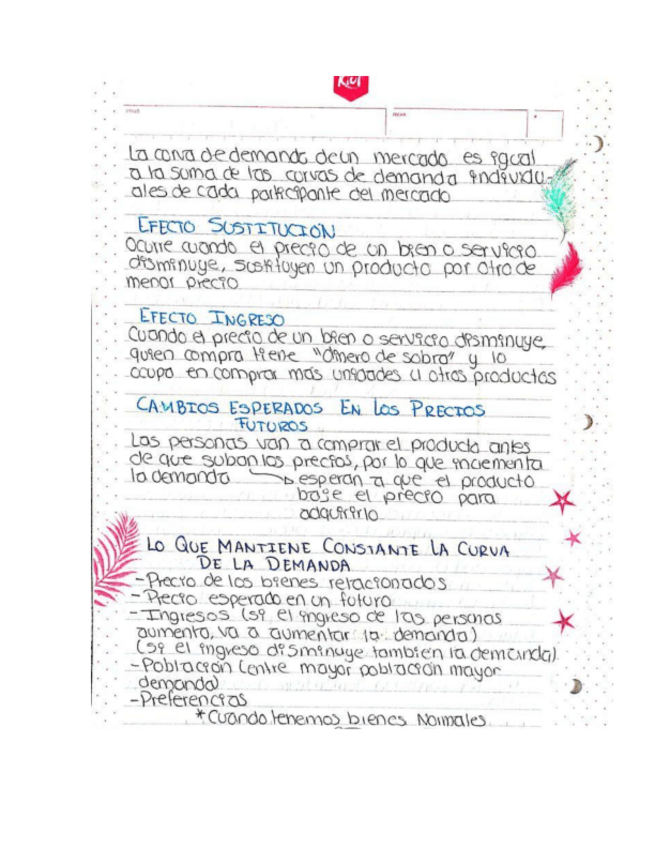 Kiut
La curva de demanda de un mercado es igual
a la suma de las curvas de demanda individu-
ales de cada participante del mercado
EFECTO SUSTITUCIÓN
Ocurre cuando el precio de un bien o servicio
disminuye, sustituyen un producto por otro de
menor precio
EFECTO INGRESO
Cuando el precio de un bien o servicio disminuye,
quien compra tiene "dinero de sobra" y lo
ocupa en comprar más unidades u otros productos
CAMBIOS ESPERADOS EN LOS PRECIOS
FUTUROS
Las personas van a comprar el producto antes
de que suban los precios, por lo que incrementa
la demanda → esperan a que el producto
baje el precio para
adquirirlo
LO QUE MANTIENE CONSTANTE LA CURVA
DE LA DEMANDA
-Precio de los bienes relacionados
-Precio esperado en un futuro
-Ingresos (si el ingreso de las personas
aumenta, va a aumentar la demanda)
(si el ingreso disminuye también la demanda)
-Población (entre mayor población mayor
demanda)
-Preferencias
*Cuando tenemos bienes Normales